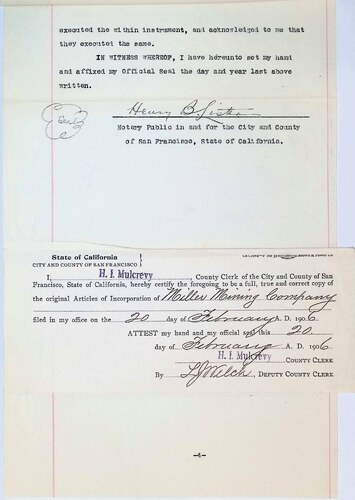 executed the within instrument, and acknowledged to me that
they executed the same.
IN WITNESS WHEREOF, I have hereunto set my hand
and affixed my Official Seal the day and year last above
written.
Seal
Henry B. Lister
Notary Public in and for the City and County
of San Francisco, State of California.
State of California
CITY AND COUNTY OF SAN FRANCISCO
I, H. I. Mulcrevy, County Clerk of the City and County of San
Francisco, State of California, hereby certify the foregoing to be a full, true and correct copy of
the original Articles of Incorporation of Miller Mining Company
filed in my office on the 20 day of February A. D. 1906
ATTEST my hand and my official seal this 20.
day of February A. D. 1906
H. I. Mulcrevy COUNTY CLERK
By L J Welch, DEPUTY COUNTY CLERK
-4-